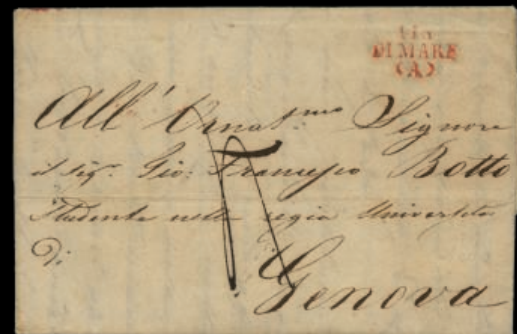 Via
DI MARE
(A)
All' Ornat.mo Signore
il Sig.r Gio: Francesco Botto
Studente nella regia Università
Di
Genova